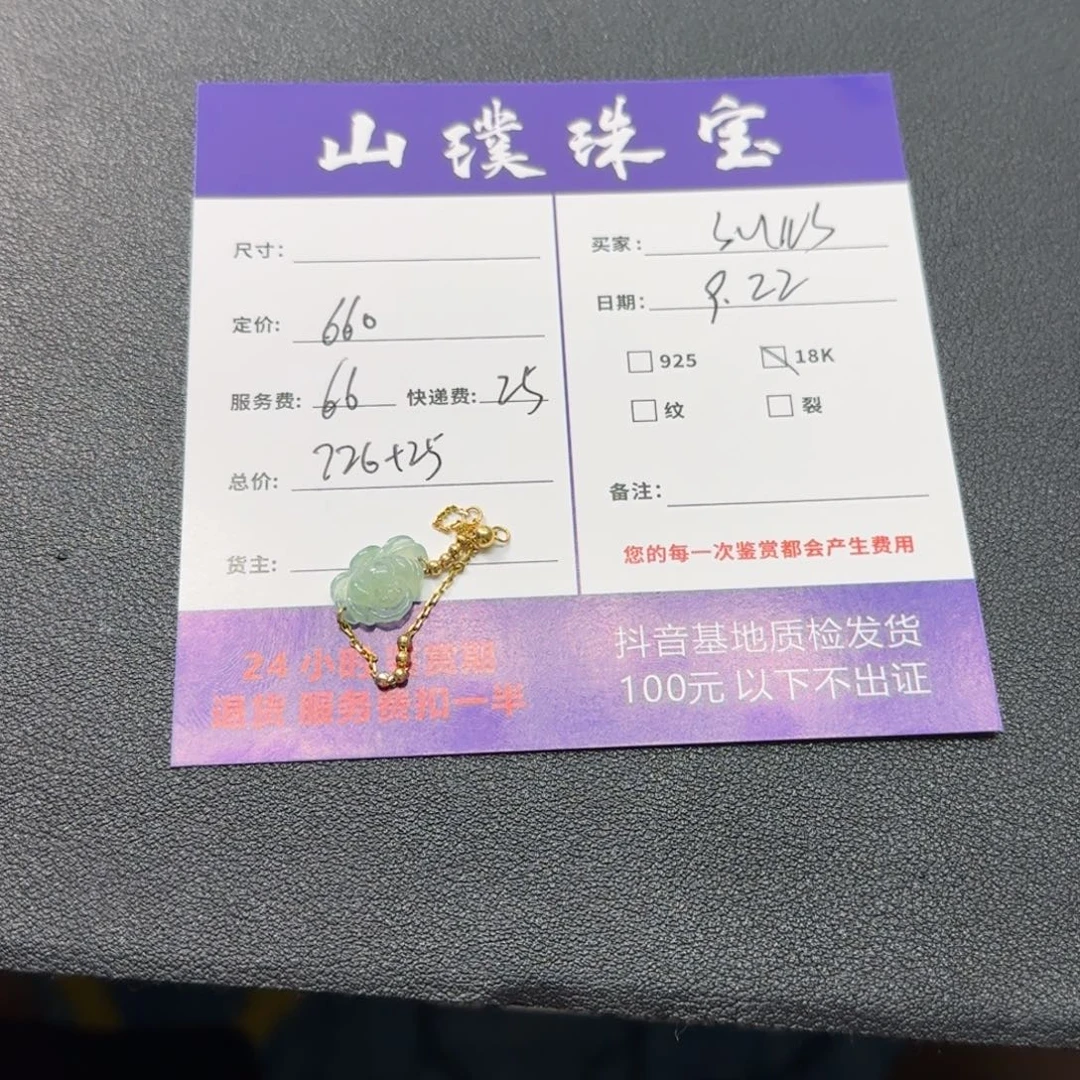 山璞珠宝
尺寸:
定价: 660
服务费: 66 快递费: 25
总价: 726+25
货主:
买家:
日期: 9.22
925 18K
纹 裂
备注:
您的每一次鉴赏都会产生费用
24小时
退货 服务费扣一半
抖音基地质检发货
100元以下不出证